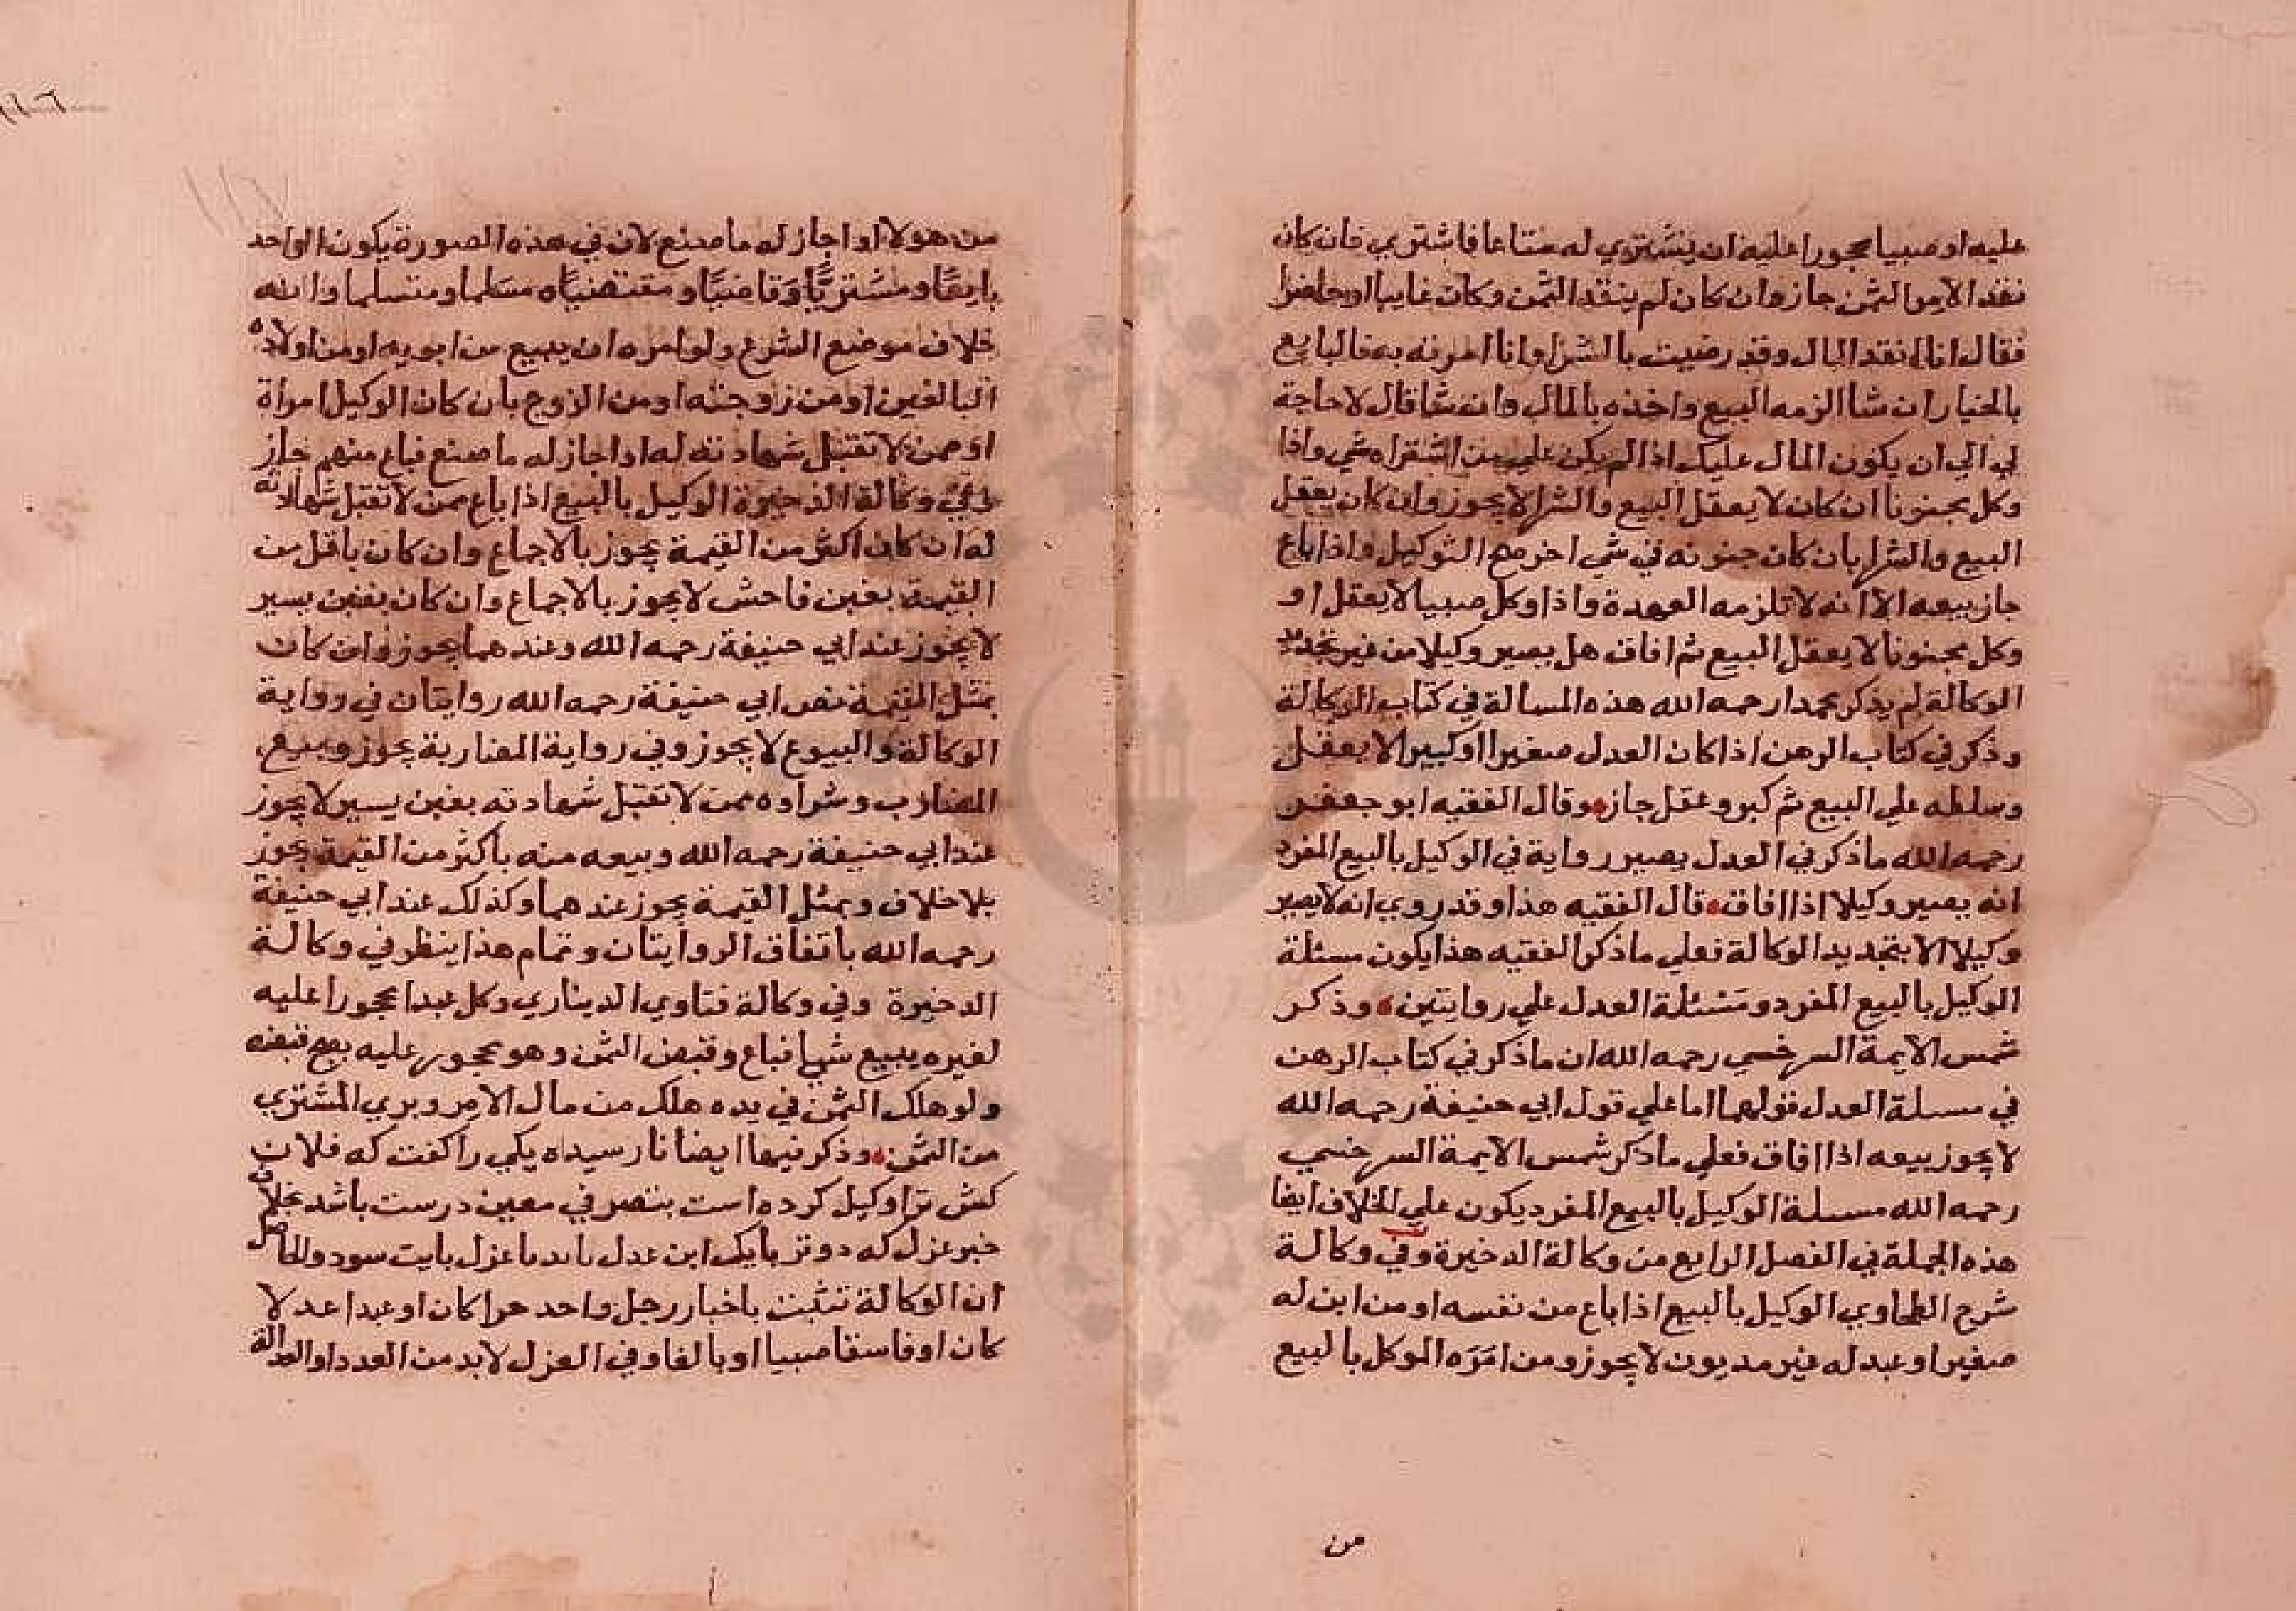 عليه او صبيا محجورا عليه ان يشتري له متاعا فاشتري فان كان
نقد الامر الثمن جاز وان كان لم ينقد الثمن وكان غايبا او حاضرا
فقال انا انقد المال وقد رضيت بالشرا وانا امرته به فالبايع
بالخيار ان شا الزمه البيع واخذه بالمال وان شا قال لا حاجة
لي الي ان يكون المال عليك اذا لم يكن علي من اشتراه شي واذا
وكل مجنونا ان كان لا يعقل البيع والشرا لا يجوز وان كان يعقل
البيع والشرا بان كان جنونه في شي اخر صح التوكيل واذا باع
جاز بيعه الا انه لا تلزمه العهدة واذا وكل صبيا لا يعقل او
وكل مجنونا لا يعقل البيع ثم افاق هل يصير وكيلا من غير تجديد
الوكالة لم يذكر محمدا رحمه الله هذه المسالة في كتاب الوكالة
وذكر في كتاب الرهن اذا كان العدل صغيرا او كبيرا لا يعقل
وسلطه علي البيع ثم كبر وعقل جاز وقال الفقيه ابو جعفر
رحمه الله ما ذكر في العدل يصير رواية في الوكيل بالبيع المفرد
انه يصير وكيلا اذا افاق قال الفقيه هذا وقد روي انه لا يصير
وكيلا الا بتجديد الوكالة فعلي ما ذكر الفقيه هذا يكون مسئلة
الوكيل بالبيع المفرد ومسئلة العدل علي روايتين وذكر
شمس الايمة السرخسي رحمه الله ان ما ذكر في كتاب الرهن
في مسلة العدل قولهما اما علي قول ابي حنيفة رحمه الله
لا يجوز بيعه اذا افاق فعلي ما ذكر شمس الايمة السرخسي
رحمه الله مسلة الوكيل بالبيع المفرد يكون علي الخلاف ايضا
هذه الجملة في الفصل الرابع من وكالة الدخيرة وفي وكالة
شرح الطحاوي الوكيل بالبيع اذا باع من نفسه او من ابن له
صغير او عبد له غير مديون لا يجوز ومن امَرَه الموكل بالبيع
من
من هولا او اجاز له ما صنع لان في هذه الصورة يكون الواحد
بايعًا ومشتريًّا وقاضيًا ومقتضيًاه مسلما ومتسلما وانه
خلاف موضع الشرع ولو امره ان يبيع من ابويه او من اولاده
البالغين او من زوجته او من الزوج بان كان الوكيل امراة
او ممن لا تقبل شهادته له اذا اجاز له ما صنع فباع منهم جاز
وفي وكالة الذخيرة الوكيل بالبيع اذا باع ممن لا تقبل شهادته
له ان كان اكثر من القيمة يجوز بالاجماع وان كان باقل من
القيمة بغبن فاحش لا يجوز بالاجماع وان كان بغبن يسير
لا يجوز عند ابي حنيفة رحمه الله وعندهما يجوز وان كان
بمثل القيمة فعن ابي حنيفة رحمه الله روايتان في رواية
الوكالة والبيوع لا يجوز وفي رواية المضاربة يجوز وبيع
المضارب وشراوه ممن لا تقبل شهادته بغبن يسير لا يجوز
عند ابي حنيفة رحمه الله وبيعه منه باكثر من القيمة يجوز
بلا خلاف وبمثل القيمة يجوز عندهما وكذلك عند ابي حنيفة
رحمه الله باتفاق الروايتان وتمام هذا ينظر في وكالة
الدخيرة وفي وكالة فتاوي الديناري وكل عبدا محجورا عليه
لغيره يبيع شيا فباع وقبض الثمن وهو محجور عليه يصح قبضه
ولو هلك الثمن في يده هلك من مال الامر وبري المشتري
من الثمن وذكر فيها ايضا نارسيده يكي را كفت كه فلان
كس ترا وكيل كرده است بتصرفي معين درست باشد بخلاف
خبر عزل كه دو تن يا يك اين عدل يا عزل ثابت سود والحاصل
ان الوكالة تثبت باخبار رجل واحد حرا كان او عبدا عدلا
كان او فاسقا صبيا او بالغا وفي العزل لا بد من العدد او العدالة